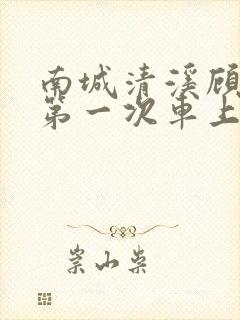 南城清溪顾
第一次車上
崇山柴